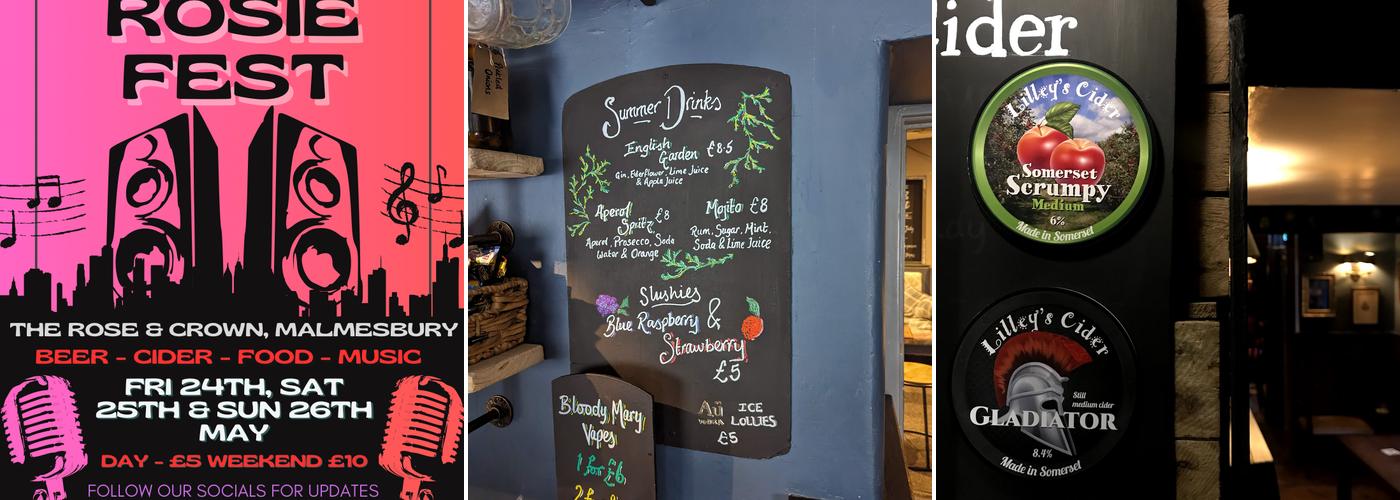 ROSIE
FEST
THE ROSE & CROWN, MALMESBURY
BEER - CIDER - FOOD - MUSIC
FRI 24TH, SAT
25TH & SUN 26TH
MAY
DAY - £5 WEEKEND £10
FOLLOW OUR SOCIALS FOR UPDATES
Pickled
Onions
Summer Drinks
English
Garden £8.5
Gin, Elderflower, Lime Juice
& Apple Juice
Aperol
Spritz £8
Aperol, Prosecco, Soda
Water & Orange
Mojito £8
Rum, Sugar, Mint,
Soda & Lime Juice
Slushies
Blue Raspberry &
Strawberry
£5
ICE
LOLLIES
£5
Bloody Mary
Vapes
1 for £6,
ider
Lilley's Cider
Somerset
Scrumpy
Medium
6%
Made in Somerset
Lilley's Cider
Still
medium cider
GLADIATOR
8.4%
Made in Somerset